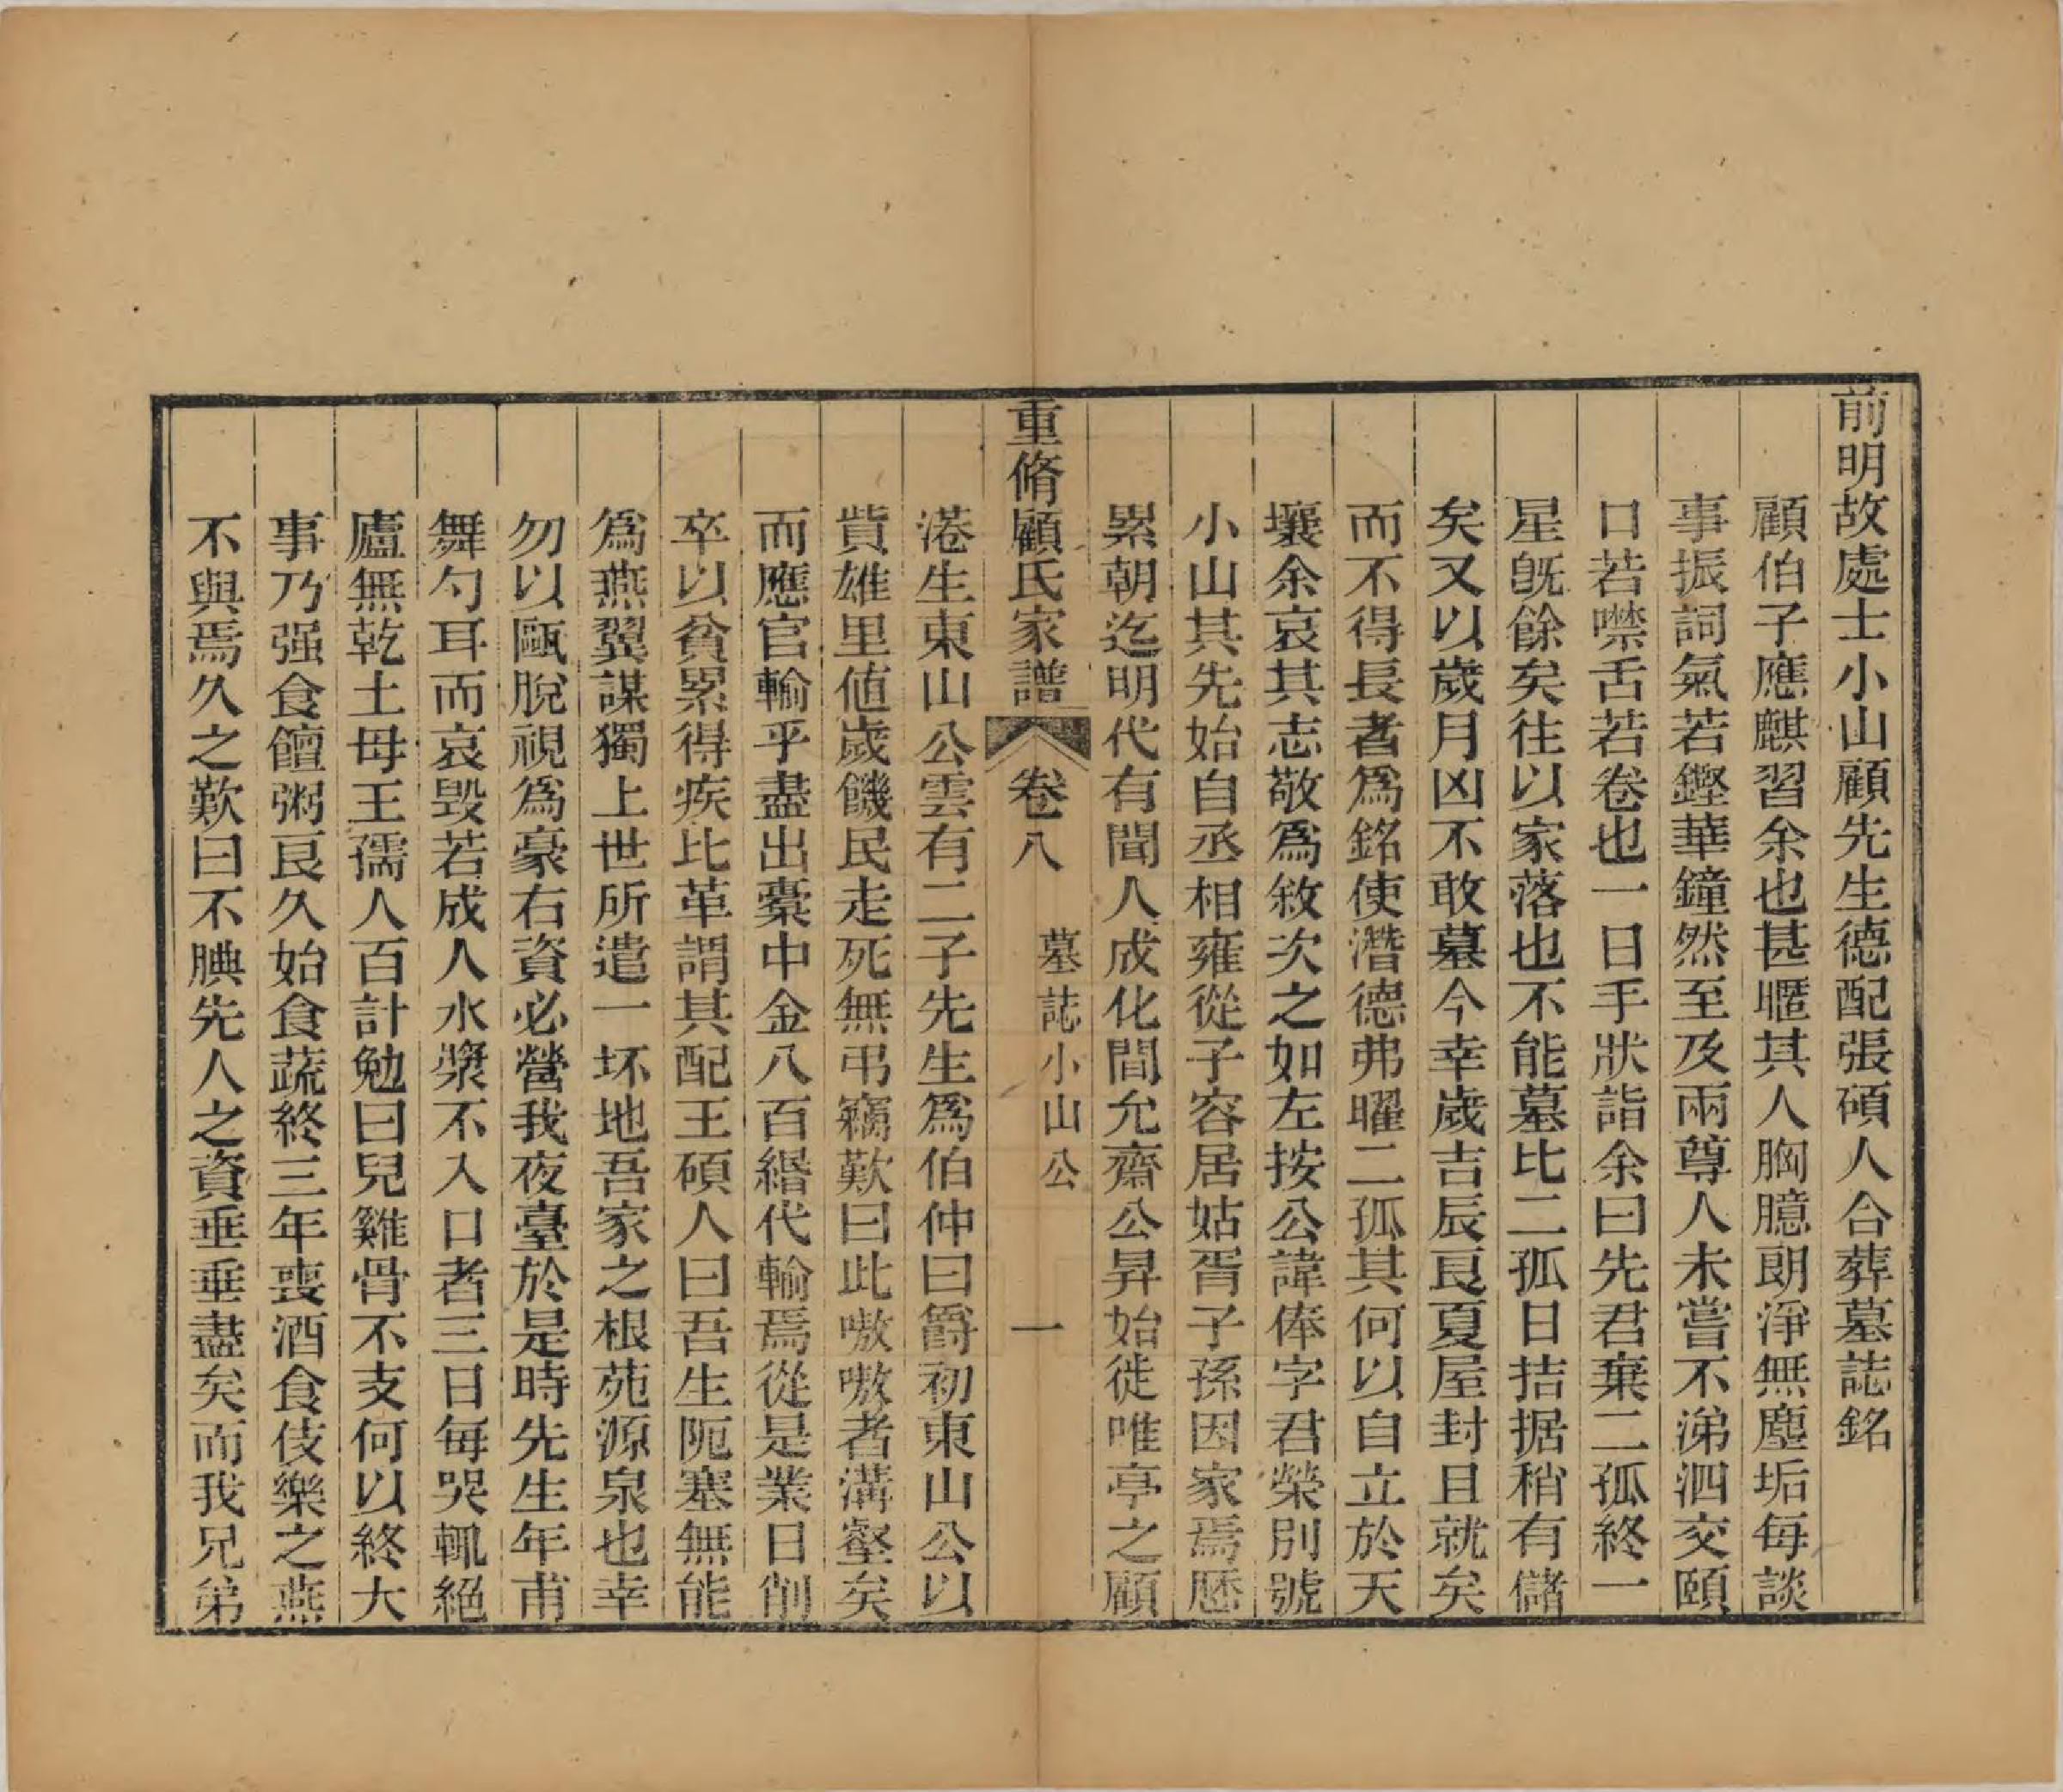 前明故處士小山顧先生德配張碩人合葬墓誌銘
顧伯子應麒習余也甚暱其人胸臆朗淨無塵垢每談
事振詞氣若鏗華鐘然至及兩尊人未嘗不涕泗交頤
口若噤舌若卷也一日手狀詣余曰先君棄二孤終一
星旣餘矣往以家落也不能墓比二孤日拮据稍有儲
矣又以歲月凶不敢墓今幸歲吉辰良夏屋封且就矣
而不得長者爲銘使潛德弗曜二孤其何以自立於天
壤余哀其志敬爲敘次之如左按公諱俸字君榮別號
小山其先始自丞相雍從子容居姑胥子孫因家焉歷
累朝迄明代有聞人成化間允齋公昇始徙唯亭之顧
重脩顧氏家譜 卷八 墓誌小山公 一
港生東山公雲有二子先生爲伯仲曰爵初東山公以
貲雄里値歲饑民走死無弔竊歎曰此嗷嗷者溝壑矣
而應官輸乎盡出橐中金八百緡代輸焉從是業日削
卒以貧累得疾比革謂其配王碩人曰吾生阨塞無能
爲燕翼謀獨上世所遣一坏地吾家之根苑源泉也幸
勿以甌脫視爲豪右資必營我夜臺於是時先生年甫
舞勺耳而哀毀若成人水漿不入口者三日每哭輒絕
廬無乾土母王孺人百計勉曰兒雞骨不支何以終大
事乃强食饘粥良久始食蔬終三年喪酒食伎樂之燕
不與焉久之歎曰不腆先人之資垂垂盡矣而我兄弟